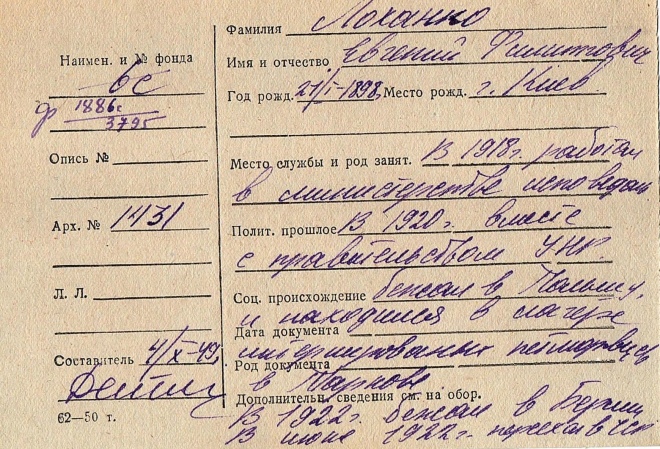 Наимен. и № фонда
6с
ф 1886с
3795
Опись №
Арх. № 1431
Л. Л.
Составитель 4/X-49
62—50 т.
Фамилия Лоханко
Имя и отчество Евгений Филиппович
Год рожд. 21/I-1898 Место рожд. г. Киев
Место службы и род занят. В 1918 г. работал
в министерстве исповедан
Полит. прошлое В 1920 г. вместе
с правительством УНР
Соц. происхождение бежал в Польшу,
и находился в лагере
Дата документа
интернированных петлюровцев
Род документа
в
Дополнительн. сведения см. на обор.
В 1922 г. бежал в Берлин
В июне 1922 г. переехал в ЧСР